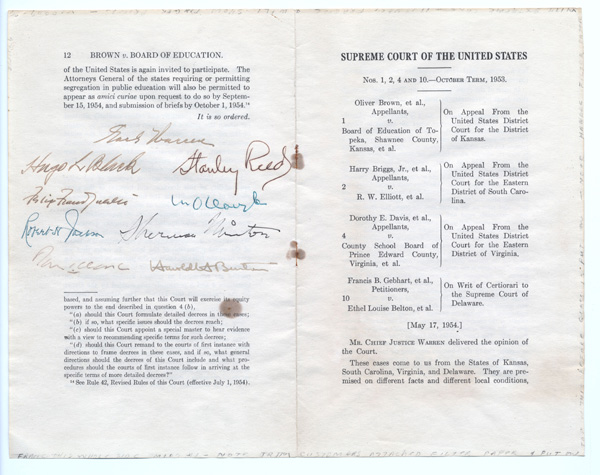 12 BROWN v. BOARD OF EDUCATION.
of the United States is again invited to participate. The
Attorneys General of the states requiring or permitting
segregation in public education will also be permitted to
appear as amici curiae upon request to do so by Septem-
ber 15, 1954, and submission of briefs by October 1, 1954.¹⁴
It is so ordered.
Earl Warren
Hugo L Black Stanley Reed
Felix Frankfurter Wm O Douglas
Robert H Jackson Sherman Minton
Harold H Burton
based, and assuming further that this Court will exercise its equity
powers to the end described in question 4 (b),
"(a) should this Court formulate detailed decrees in these cases;
"(b) if so, what specific issues should the decrees reach;
"(c) should this Court appoint a special master to hear evidence
with a view to recommending specific terms for such decrees;
"(d) should this Court remand to the courts of first instance with
directions to frame decrees in these cases, and if so, what general
directions should the decrees of this Court include and what pro-
cedures should the courts of first instance follow in arriving at the
specific terms of more detailed decrees?"
¹⁴ See Rule 42, Revised Rules of this Court (effective July 1, 1954).
SUPREME COURT OF THE UNITED STATES
Nos. 1, 2, 4 and 10.—OCTOBER TERM, 1953.
Oliver Brown, et al.,
Appellants,
1 v.
Board of Education of To-
peka, Shawnee County,
Kansas, et al.
On Appeal From the
United States District
Court for the District
of Kansas.
Harry Briggs, Jr., et al.,
Appellants,
2 v.
R. W. Elliott, et al.
On Appeal From the
United States District
Court for the Eastern
District of South Caro-
lina.
Dorothy E. Davis, et al.,
Appellants,
4 v.
County School Board of
Prince Edward County,
Virginia, et al.
On Appeal From the
United States District
Court for the Eastern
District of Virginia.
Francis B. Gebhart, et al.,
Petitioners,
10 v.
Ethel Louise Belton, et al.
On Writ of Certiorari to
the Supreme Court of
Delaware.
[May 17, 1954.]
MR. CHIEF JUSTICE WARREN delivered the opinion of
the Court.
These cases come to us from the States of Kansas,
South Carolina, Virginia, and Delaware. They are pre-
mised on different facts and different local conditions,